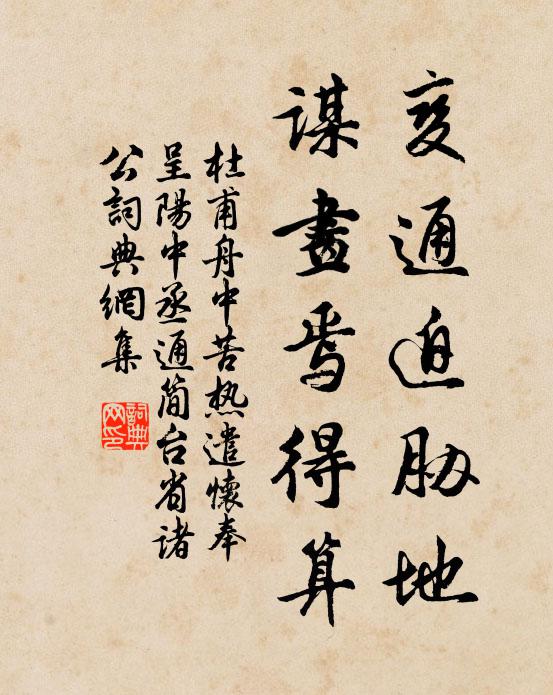 变通迫胁地
谋畫焉得算
杜甫舟中苦热遣懷奉
呈陽中丞通简台省诸
公詞典網集
詞典
网印